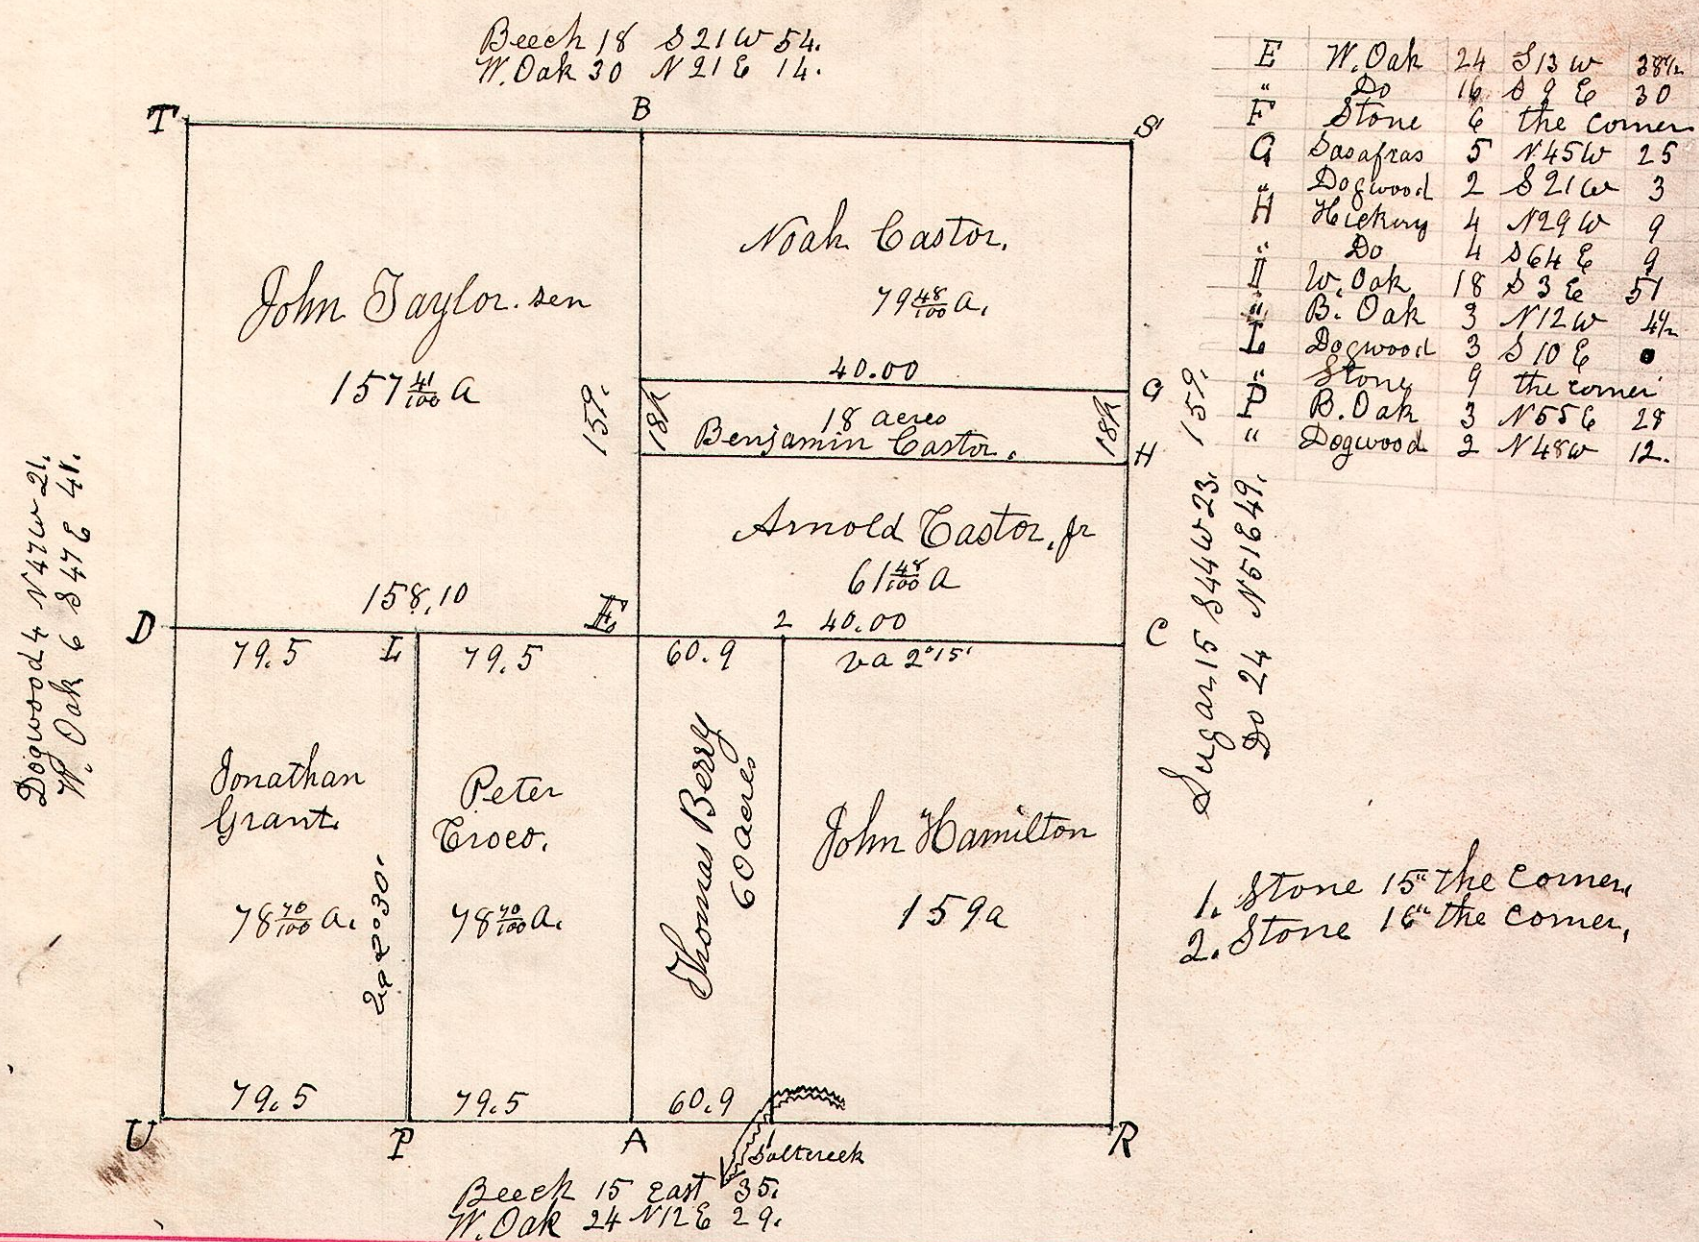 Beech 18 S21W 54.
W. Oak 30 N21E 14.
T B S
John Taylor. sen
157 41/100 A
159.
Noah Castor.
79 48/100 A.
40.00
G
18 acres
18h
Benjamin Castor.
18h
H
159.
Arnold Castor, jr
61 48/100 A
2 40.00
158,10
D E C
79.5 L 79.5 60.9 va 2°15'
Dogwood 4 N47W 21.
W. Oak 6 S47E 41.
Sugar 15 S44W 23.
Do 24 N51E 49.
Jonathan
Grant.
78 70/100 A.
va 2°30'
Peter
78 70/100 A.
Thomas Berry
60 acres
John Hamilton
159a
79.5 79.5 60.9
U P A R
Saltcreek
Beech 15 East 35.
W. Oak 24 N12E 29.
E W. Oak 24 S13W 38½
" Do 16 S9E 30
F Stone 6 the corner
G Sasafras 5 N45W 25
" Dogwood 2 S21W 3
H Hickory 4 N29W 9
" Do 4 S64E 9
I W. Oak 18 S3E 51
" B. Oak 3 N12W 4½
L Dogwood 3 S10E
" Stone 9 the corner
P B. Oak 3 N55E 28
" Dogwood 2 N48W 12.
1. Stone 15" the Corner.
2. Stone 16" the corner.